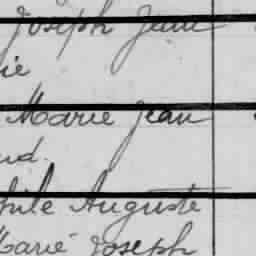 Joseph Jean
ie
Marie Jean
nd.
hile Auguste
Marie Joseph